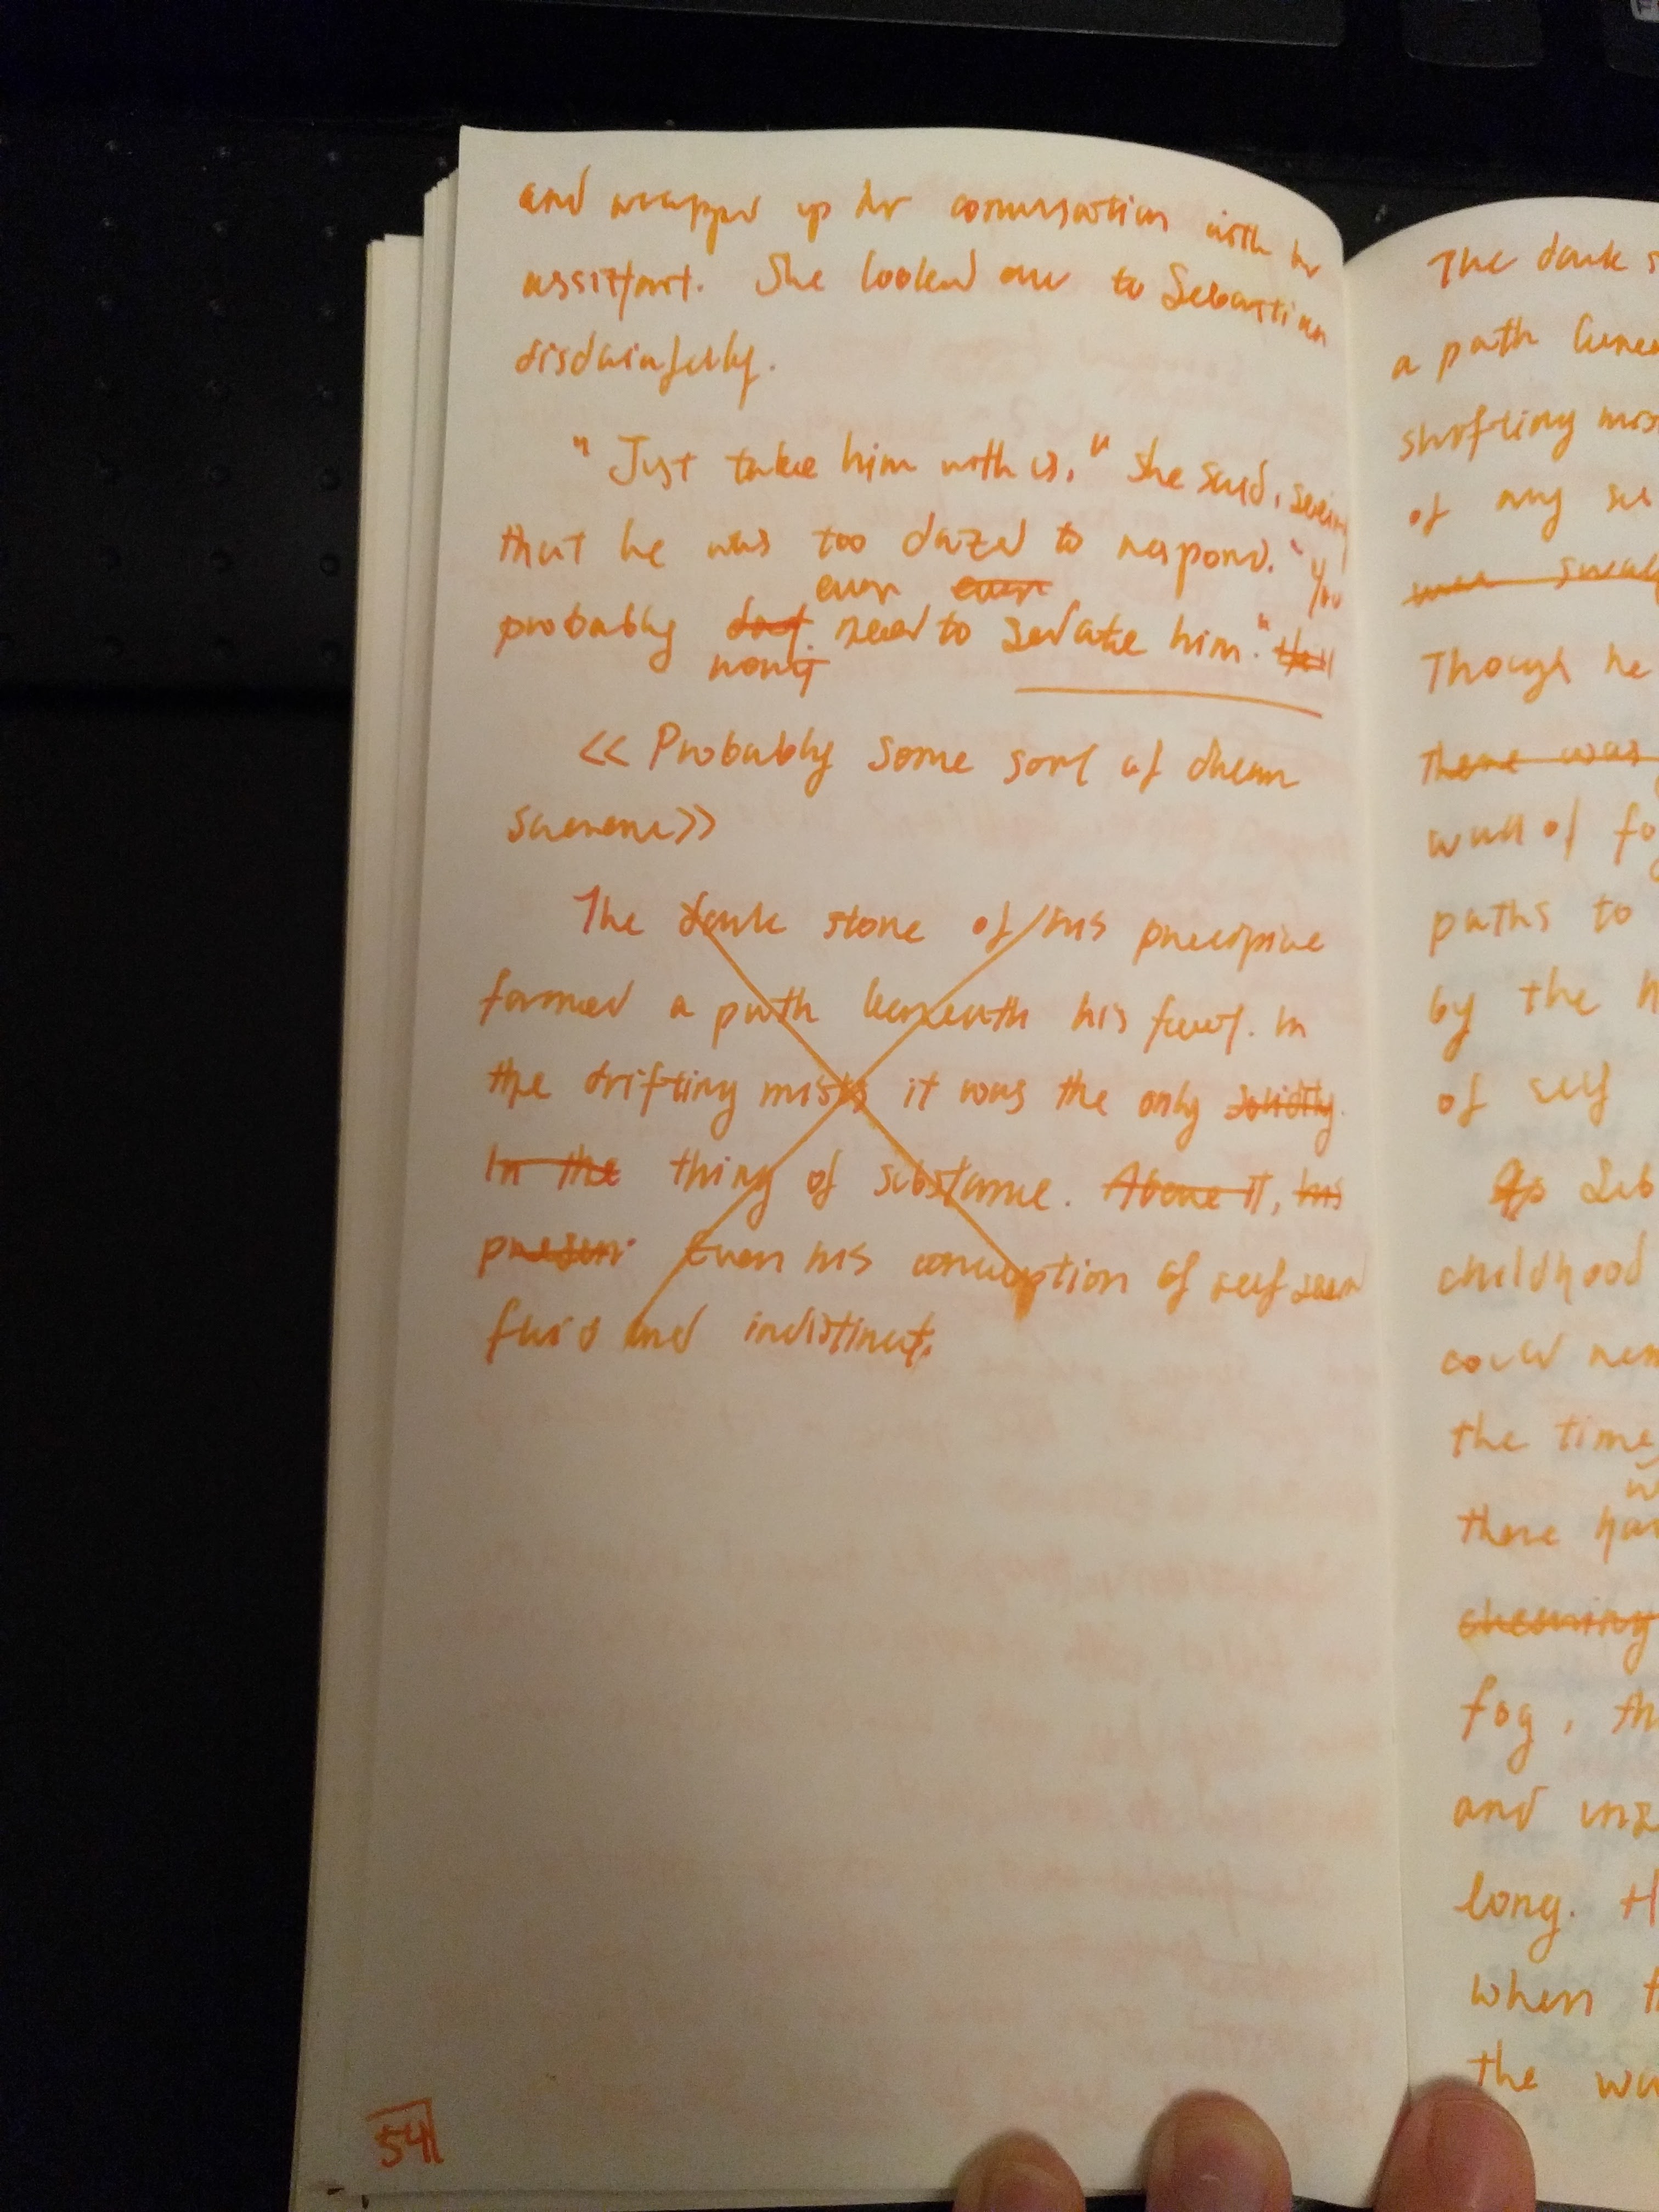 and wrapped up her conversation with her
assistant. She looked over to Sebastian
disdainfully.
"Just take him with us," she said, seeing
that he was too dazed to respond. "You
even even
probably don't need to sedate him."
won't
<< Probably some sort of dream
>>
The dark stone of his precipice
formed a path beneath his feet. In
the drifting mists it was the only solidity.
In the thing of substance. Above it, his
Even his conception of self
fluid and indistinct.
54
The dark
a path
shifting
of any
Though he
There was
wall of
paths to
by the
of self
childhood
could
the time
there
fog, th
and
long.
when
the